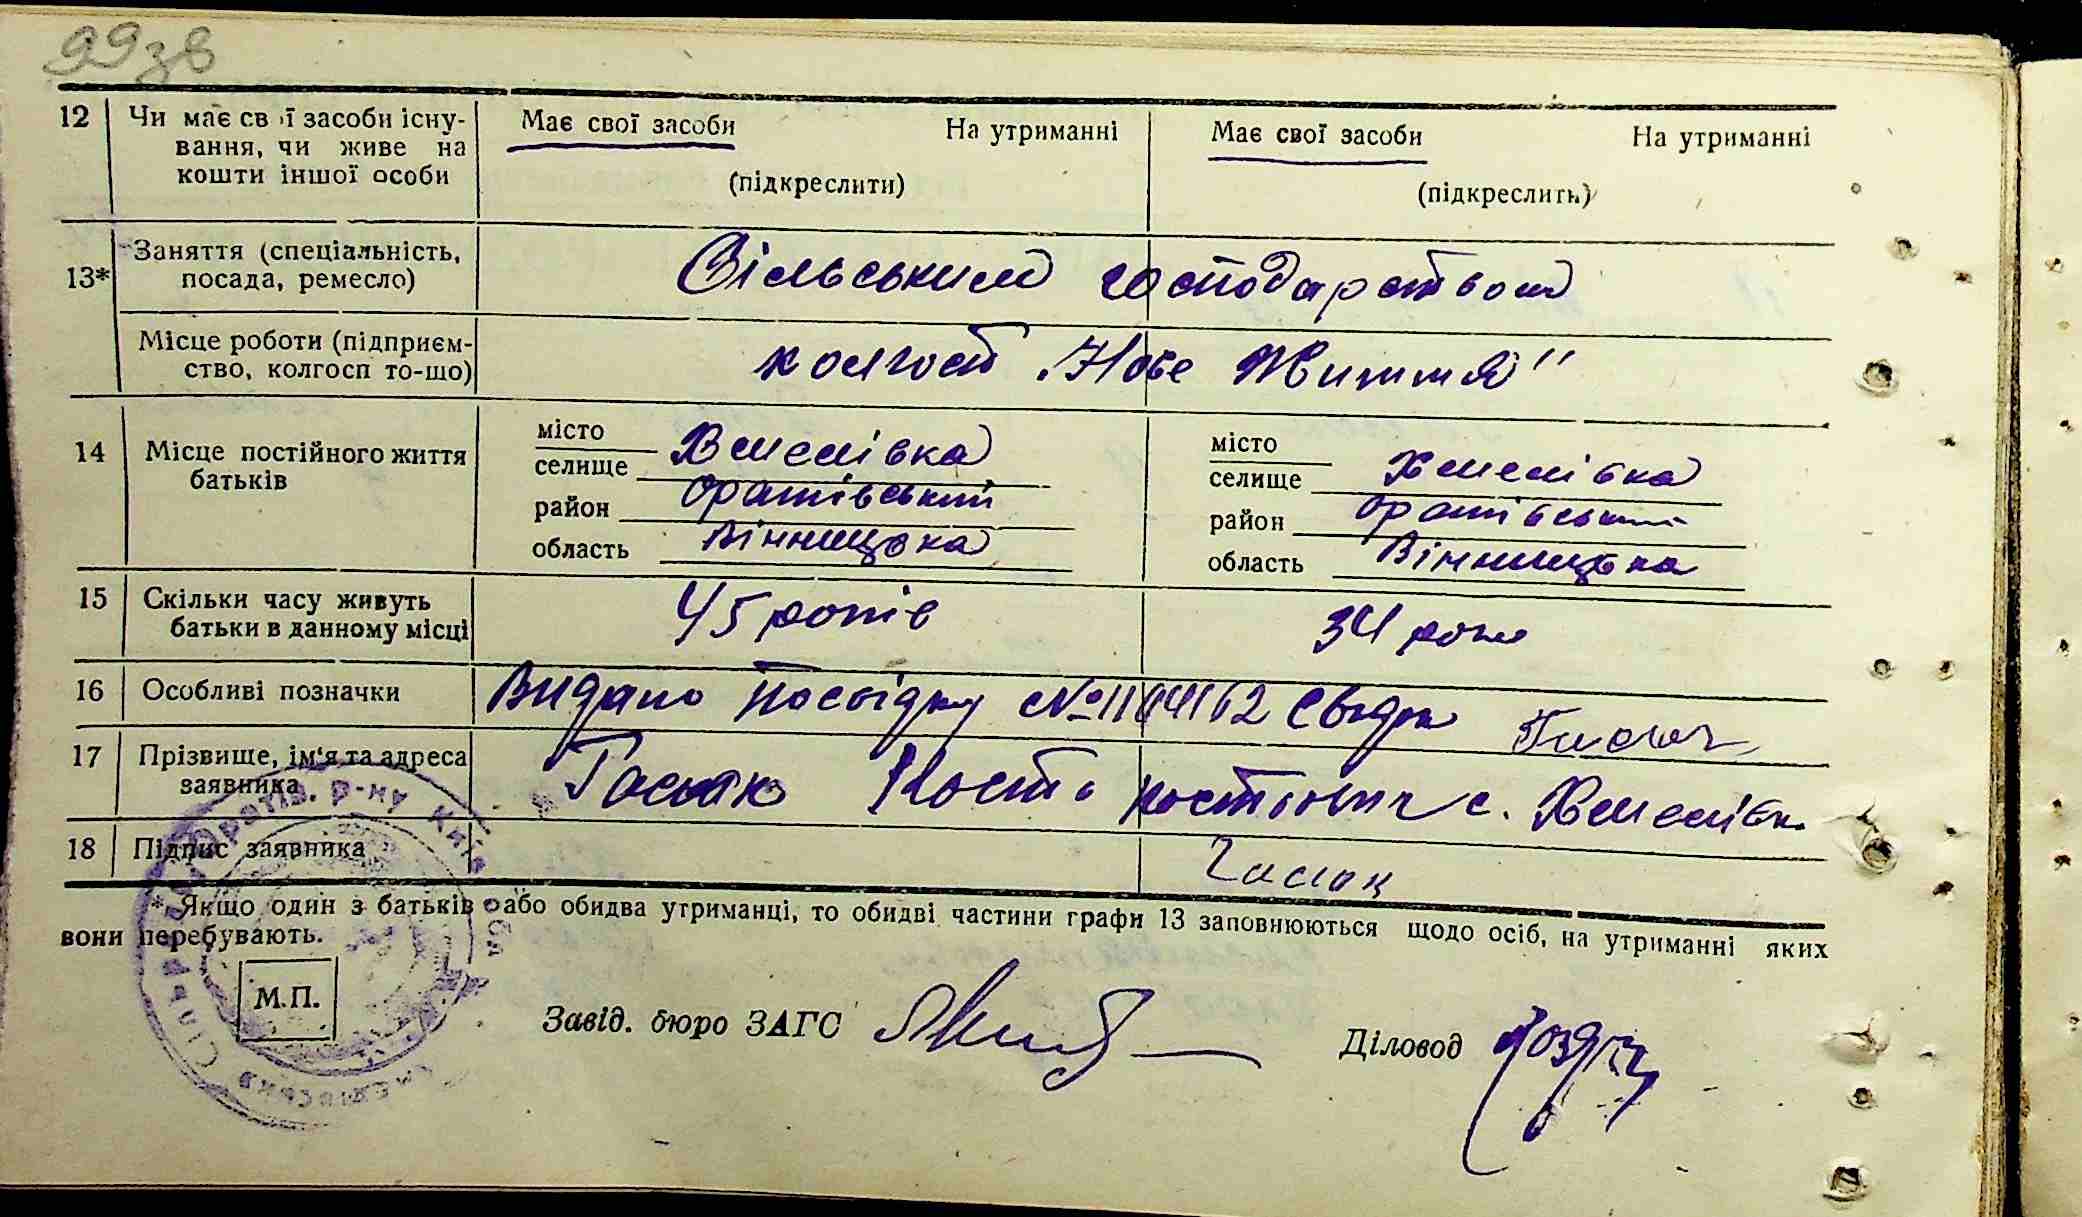 99 зв
12 Чи має св ї засоби існу-
вання, чи живе на
кошти іншої особи
Має свої засоби На утриманні
(підкреслити)
Має свої засоби На утриманні
(підкреслить)
13* Заняття (спеціальність,
посада, ремесло)
Сільським господарством
Місце роботи (підприєм-
ство, колгосп то-що)
колгосп „Нове Життя"
14 Місце постійного життя
батьків
місто
селище Хмелівка
район Оратівський
область Вінницька
місто
селище Хмелівка
район Оратівський
область Вінницька
15 Скільки часу живуть
батьки в данному місці
45 років
34 роки
16 Особливі позначки
Видано посвідку №
17 Прізвище, ім'я та адреса
заявника
Гасюк Кость Костьович с. Хмелівка
18 Підпис заявника
Гасюк
* Якщо один з батьків або обидва утриманці, то обидві частини графи 13 заповнюються щодо осіб, на утриманні яких
вони перебувають.
М.П.
Оратів. р-ну Київ обл
Завід. бюро ЗАГС
Діловод